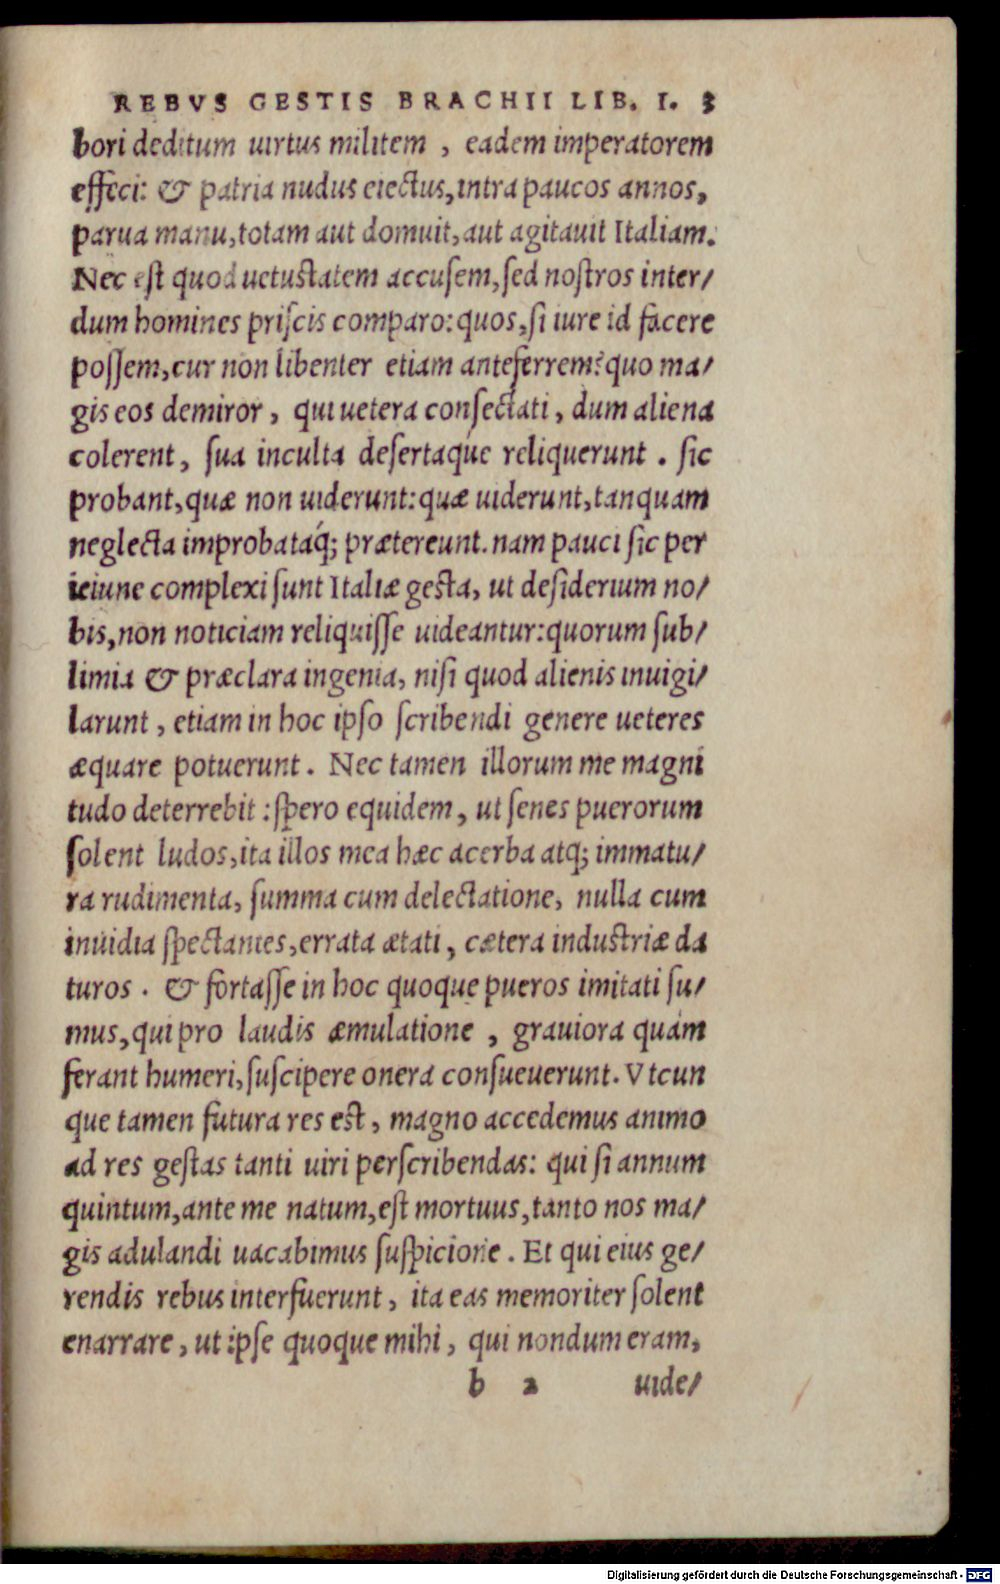 REBVS GESTIS BRACHII LIB. I. 3
bori deditum uirtus militem , eadem imperatorem
effeci: & patria nudus eiectus, intra paucos annos,
parua manu, totam aut domuit, aut agitauit Italiam.
Nec est quod uetustatem accusem, sed nostros inter/
dum homines priscis comparo: quos, si iure id facere
possem, cur non libenter etiam anteferrem? quo ma/
gis eos demiror , qui uetera consectati , dum aliena
colerent , sua inculta desertaq́ue reliquerunt . sic
probant, quæ non uiderunt: quæ uiderunt, tanquam
neglecta improbataq́; prætereunt. nam pauci sic per
ieiune complexi sunt Italiæ gesta, ut desiderium no/
bis, non noticiam reliquisse uideantur: quorum sub/
limia & præclara ingenia, nisi quod alienis inuigi/
larunt , etiam in hoc ipso scribendi genere ueteres
æquare potuerunt . Nec tamen illorum me magni
tudo deterrebit : spero equidem , ut senes puerorum
solent ludos, ita illos mea hæc acerba atq; immatu/
ra rudimenta, summa cum delectatione, nulla cum
inuidia spectantes, errata ætati , cætera industriæ da
turos . & fortasse in hoc quoque pueros imitati su/
mus, qui pro laudis æmulatione , grauiora quàm
ferant humeri, suscipere onera consueuerunt. Vtcun
que tamen futura res est , magno accedemus animo
ad res gestas tanti uiri perscribendas: qui si annum
quintum, ante me natum, est mortuus, tanto nos ma/
gis adulandi uacabimus suspicione . Et qui eius ge/
rendis rebus interfuerunt , ita eas memoriter solent
enarrare , ut ipse quoque mihi , qui nondum eram,
b 2 uide/
Digitalisierung gefördert durch die Deutsche Forschungsgemeinschaft - DFG